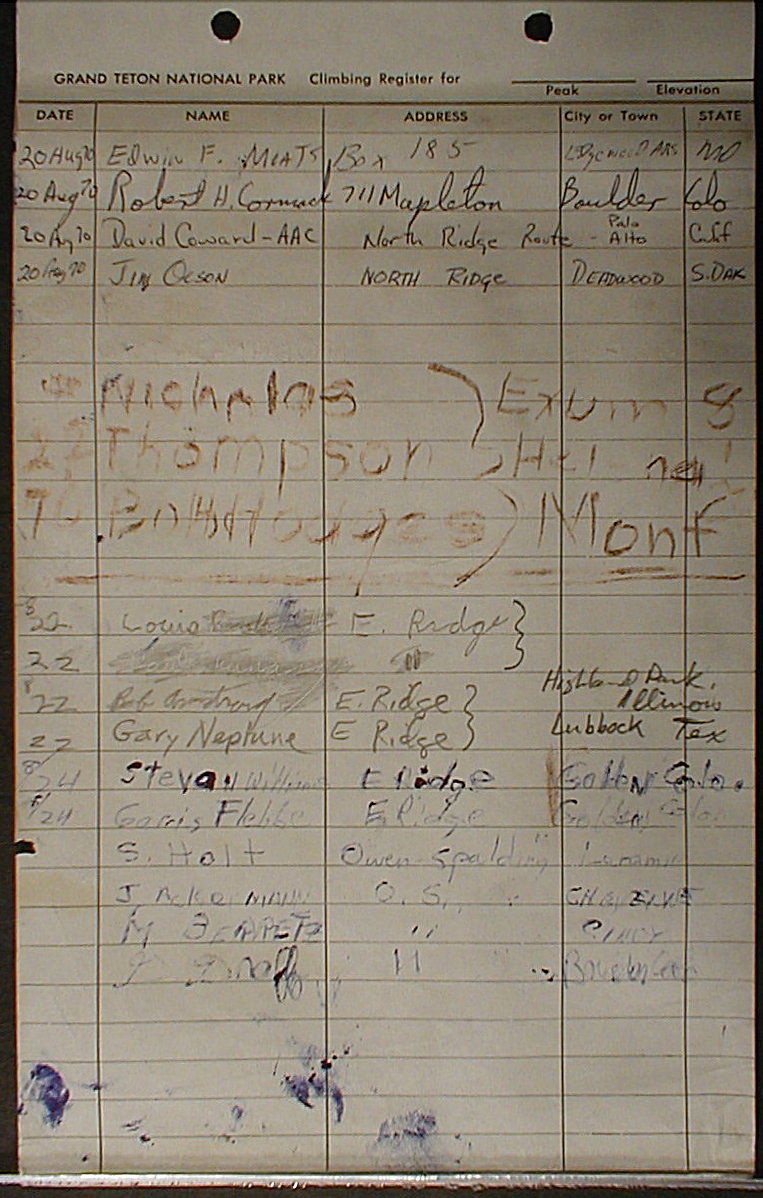 GRAND TETON NATIONAL PARK Climbing Register for
Peak Elevation
DATE NAME ADDRESS City or Town STATE
20 Aug 70 Edwin F. Box 185 MD
20 Aug 70 Robert H. Cormack 711 Mapleton Boulder Colo
20 Aug 70 David Coward - AAC North Ridge Route - Palo Alto Calif
20 Aug 70 Jim Olson North Ridge Deadwood S. Dak
Nicholas ) Exum &
27 Thompson
70 Hodges ) Mont
8 22 Louis E. Ridge }
22 "
8 22 Bob Armstrong E. Ridge } Highland Park, Illinois
22 Gary Neptune E Ridge } Lubbock Tex
8/24 Steven E Ridge Golden Colo.
8/24 E Ridge Golden Colo
S. Holt Owen Spalding
J. O. S.
M "